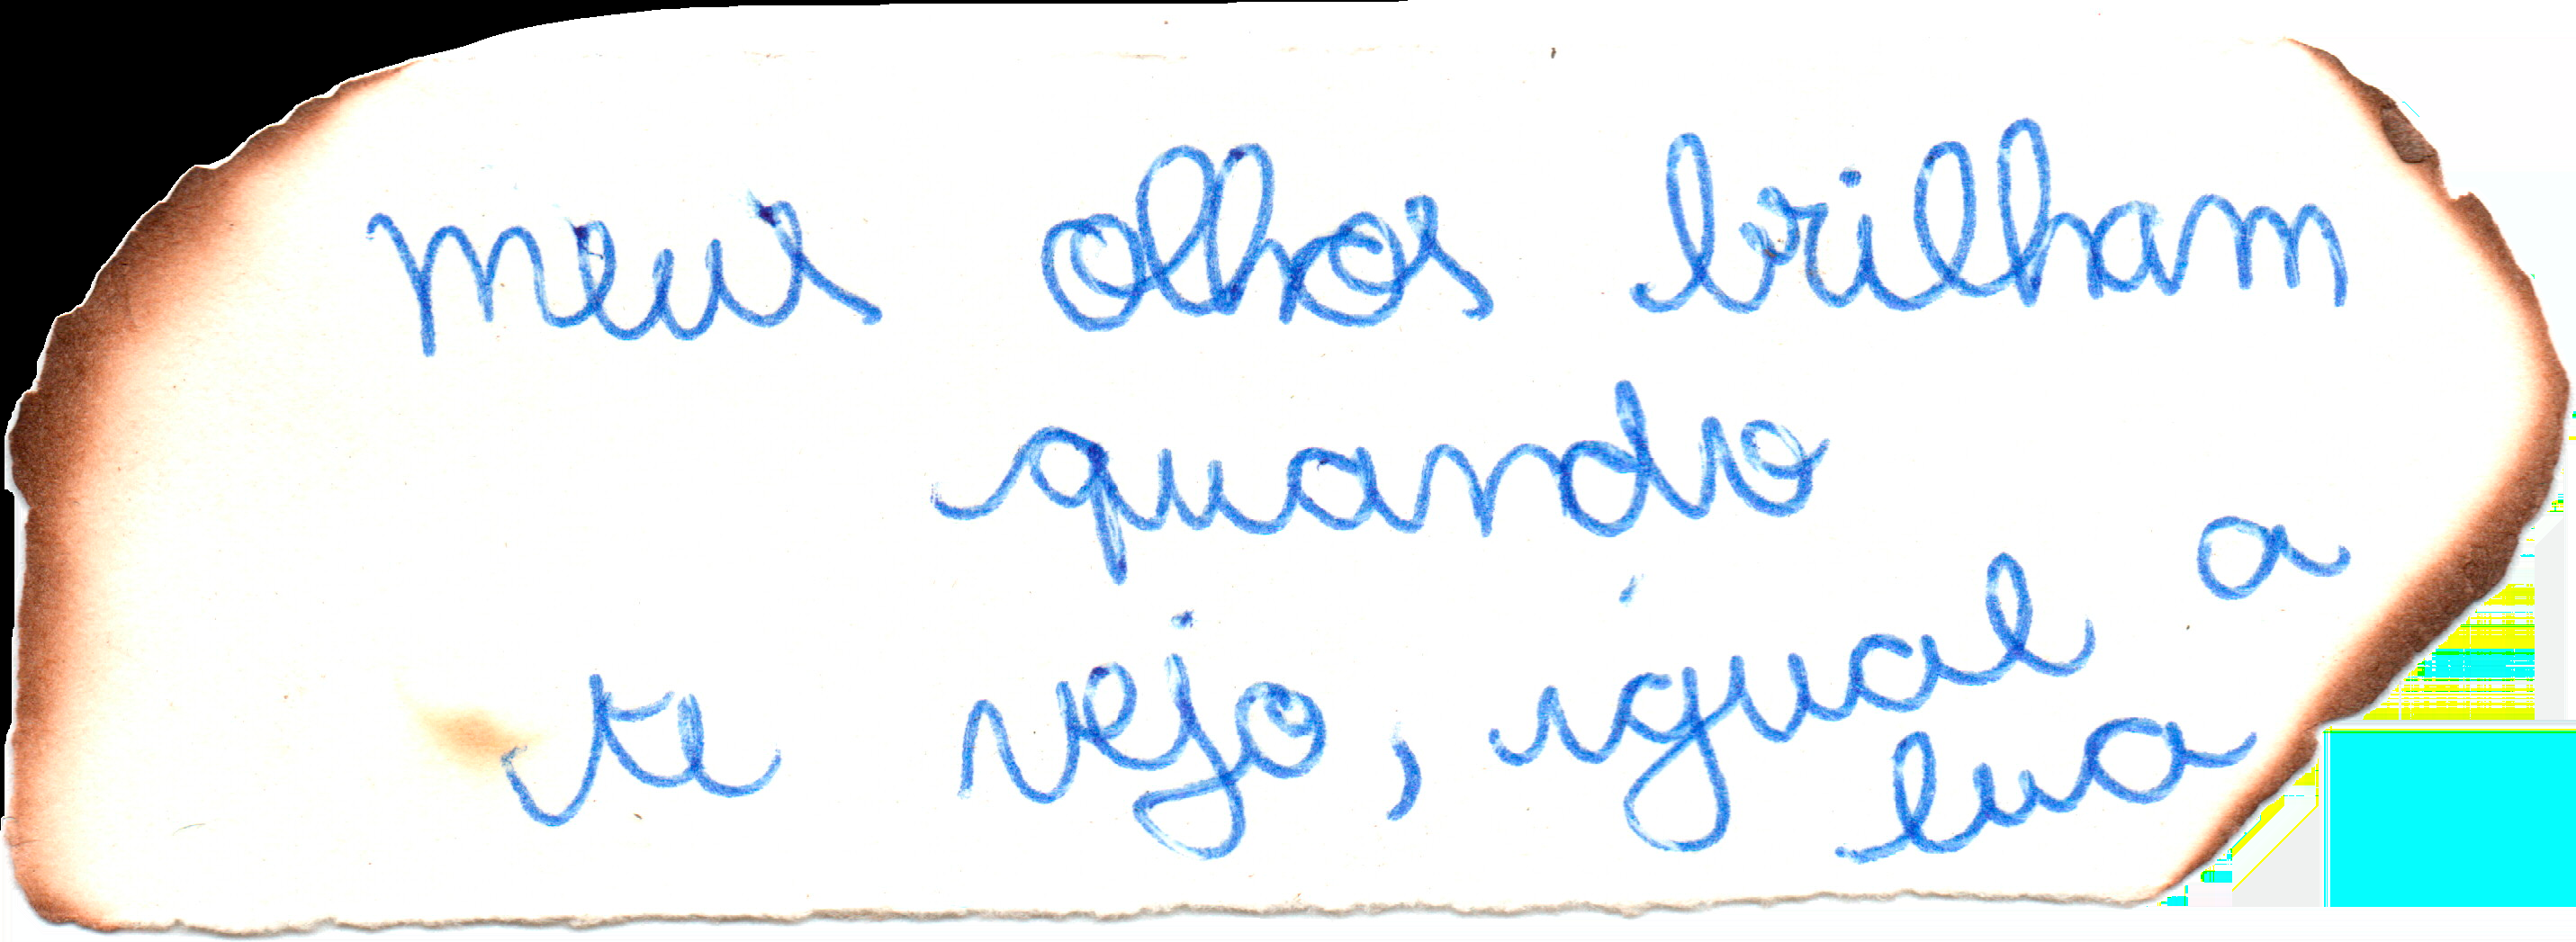 meus olhos brilham
quando
te vejo, igual a
lua